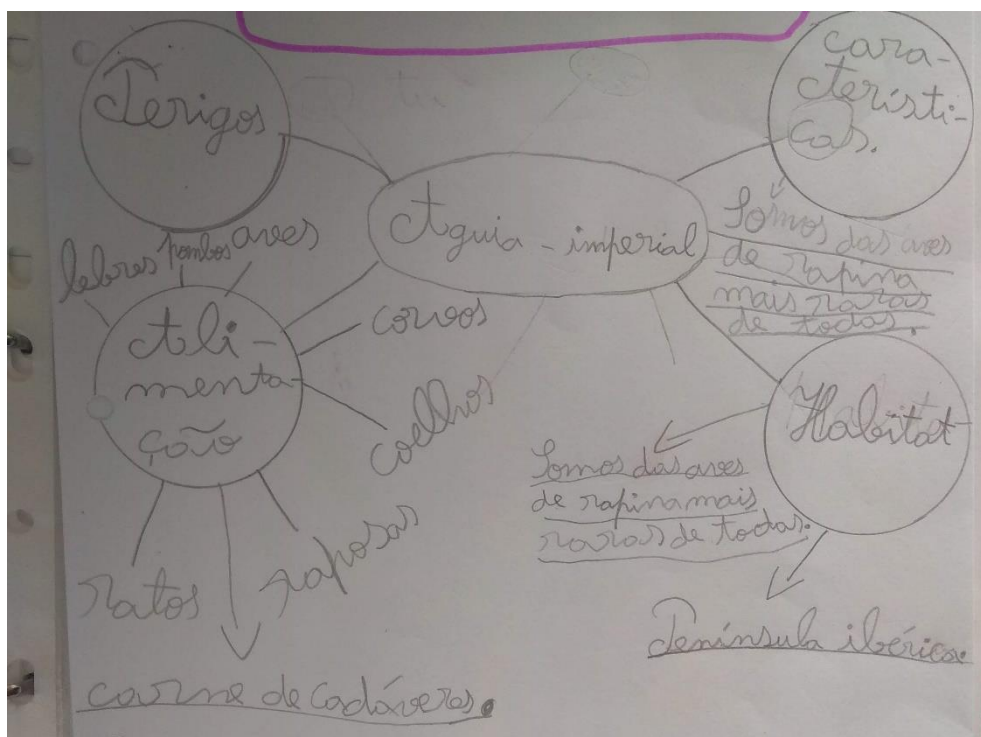 Perigos
cara-
cterísti-
cas.
Aguia - imperial
Somos das aves
de rapina
mais raras
de todas.
lebres
pombos
aves
Ali-
menta-
ção
corvos
coelhos
raposas
ratos
carne de cadáveres.
Habitat
Somos das aves
de rapina mais
raras de todas.
Península ibérica.